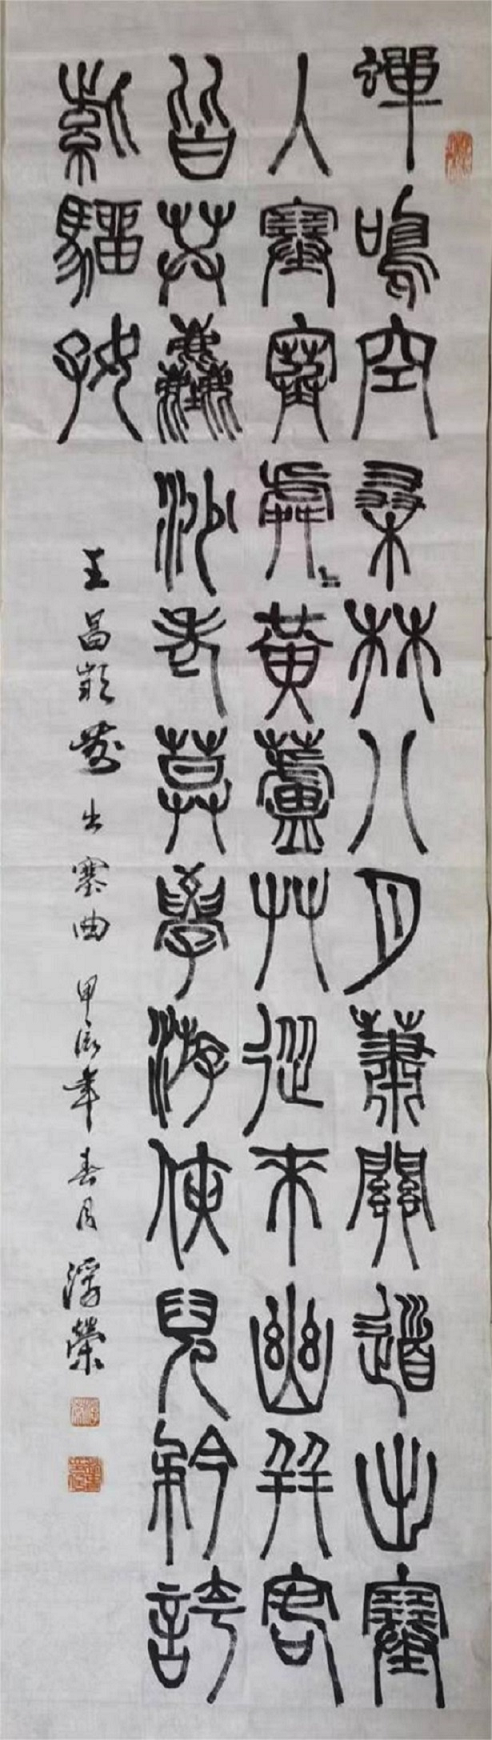 蟬鳴空桑林八月蕭關道出塞
入塞寒處〻黃蘆艸從來幽并客
皆共塵沙老莫學游俠兒矜誇
紫騮好
王昌齡出塞曲 甲辰年春月 榮